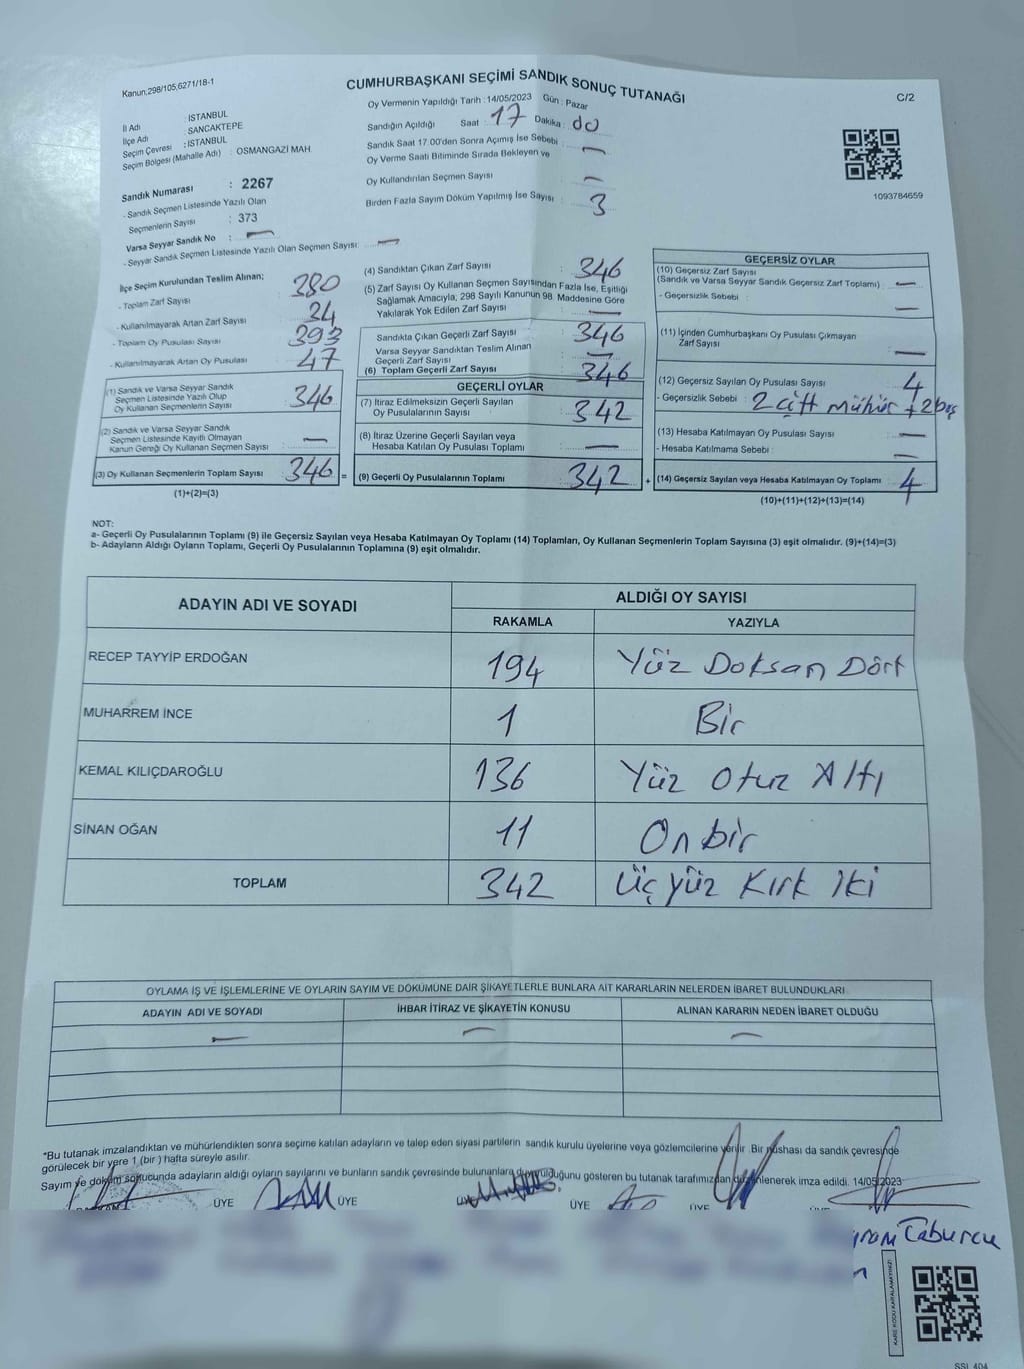 Kanun,298/105,6271/18-1
CUMHURBAŞKANI SEÇİMİ SANDIK SONUÇ TUTANAĞI
C/2
Oy Vermenin Yapıldığı Tarih : 14/05/2023 Gün : Pazar
İl Adı : İSTANBUL
İlçe Adı : SANCAKTEPE
Seçim Çevresi : İSTANBUL
Seçim Bölgesi (Mahalle Adı) : OSMANGAZİ MAH.
Sandığın Açıldığı Saat : 17 Dakika : 00
Sandık Saat 17.00'den Sonra Açımış İse Sebebi : —
Oy Verme Saati Bitiminde Sırada Bekleyen ve
Oy Kullandırılan Seçmen Sayısı —
Birden Fazla Sayım Döküm Yapılmış İse Sayısı : 3
1093784659
Sandık Numarası : 2267
- Sandık Seçmen Listesinde Yazılı Olan
Seçmenlerin Sayısı : 373
Varsa Seyyar Sandık No : —
- Seyyar Sandık Seçmen Listesinde Yazılı Olan Seçmen Sayısı: —
İlçe Seçim Kurulundan Teslim Alınan;
- Toplam Zarf Sayısı 380
- Kullanılmayarak Artan Zarf Sayısı 34
- Toplam Oy Pusulası Sayısı 393
- Kullanılmayarak Artan Oy Pusulası 47
(1) Sandık ve Varsa Seyyar Sandık
Seçmen Listesinde Yazılı Olup
Oy Kullanan Seçmenlerin Sayısı 346
(2) Sandık ve Varsa Seyyar Sandık
Seçmen Listesinde Kayıtlı Olmayan
Kanun Gereği Oy Kullanan Seçmen Sayısı : —
(3) Oy Kullanan Seçmenlerin Toplam Sayısı 346 =
(1)+(2)=(3)
(4) Sandıktan Çıkan Zarf Sayısı : 346
(5) Zarf Sayısı Oy Kullanan Seçmen Sayısından Fazla İse, Eşitliği
Sağlamak Amacıyla; 298 Sayılı Kanunun 98. Maddesine Göre
Yakılarak Yok Edilen Zarf Sayısı —
Sandıkta Çıkan Geçerli Zarf Sayısı : 346
Varsa Seyyar Sandıktan Teslim Alınan
Geçerli Zarf Sayısı —
(6) Toplam Geçerli Zarf Sayısı : 346
GEÇERLİ OYLAR
(7) İtiraz Edilmeksizin Geçerli Sayılan
Oy Pusulalarının Sayısı : 342
(8) İtiraz Üzerine Geçerli Sayılan veya
Hesaba Katılan Oy Pusulası Toplamı : —
(9) Geçerli Oy Pusulalarının Toplamı : 342 +
GEÇERSİZ OYLAR
(10) Geçersiz Zarf Sayısı
(Sandık ve Varsa Seyyar Sandık Geçersiz Zarf Toplamı) : —
- Geçersizlik Sebebi : —
(11) İçinden Cumhurbaşkanı Oy Pusulası Çıkmayan
Zarf Sayısı —
(12) Geçersiz Sayılan Oy Pusulası Sayısı : 4
- Geçersizlik Sebebi : 2 çift mühür + 2 boş
(13) Hesaba Katılmayan Oy Pusulası Sayısı : —
- Hesaba Katılmama Sebebi : —
(14) Geçersiz Sayılan veya Hesaba Katılmayan Oy Toplamı : 4
(10)+(11)+(12)+(13)=(14)
NOT:
a- Geçerli Oy Pusulalarının Toplamı (9) ile Geçersiz Sayılan veya Hesaba Katılmayan Oy Toplamı (14) Toplamları, Oy Kullanan Seçmenlerin Toplam Sayısına (3) eşit olmalıdır. (9)+(14)=(3)
b- Adayların Aldığı Oyların Toplamı, Geçerli Oy Pusulalarının Toplamına (9) eşit olmalıdır.
ADAYIN ADI VE SOYADI
ALDIĞI OY SAYISI
RAKAMLA YAZIYLA
RECEP TAYYİP ERDOĞAN 194 Yüz Doksan Dört
MUHARREM İNCE 1 Bir
KEMAL KILIÇDAROĞLU 136 Yüz Otuz Altı
SİNAN OĞAN 11 On bir
TOPLAM 342 Üç yüz Kırk iki
OYLAMA İŞ VE İŞLEMLERİNE VE OYLARIN SAYIM VE DÖKÜMÜNE DAİR ŞİKAYETLERLE BUNLARA AİT KARARLARIN NELERDEN İBARET BULUNDUKLARI
ADAYIN ADI VE SOYADI İHBAR İTİRAZ VE ŞİKAYETİN KONUSU ALINAN KARARIN NEDEN İBARET OLDUĞU
— — —
*Bu tutanak imzalandıktan ve mühürlendikten sonra seçime katılan adayların ve talep eden siyasi partilerin sandık kurulu üyelerine veya gözlemcilerine verilir. Bir nüshası da sandık çevresinde
görülecek bir yere 1 (bir) hafta süreyle asılır.
Sayım ve döküm sonucunda adayların aldığı oyların sayılarını ve bunların sandık çevresinde bulunanlara duyurulduğunu gösteren bu tutanak tarafımızdan düzenlenerek imza edildi. 14/05/2023
ÜYE ÜYE ÜYE ÜYE ÜYE
Taburcu
KARE KODU KARALAMAYINIZ!
SSI 404